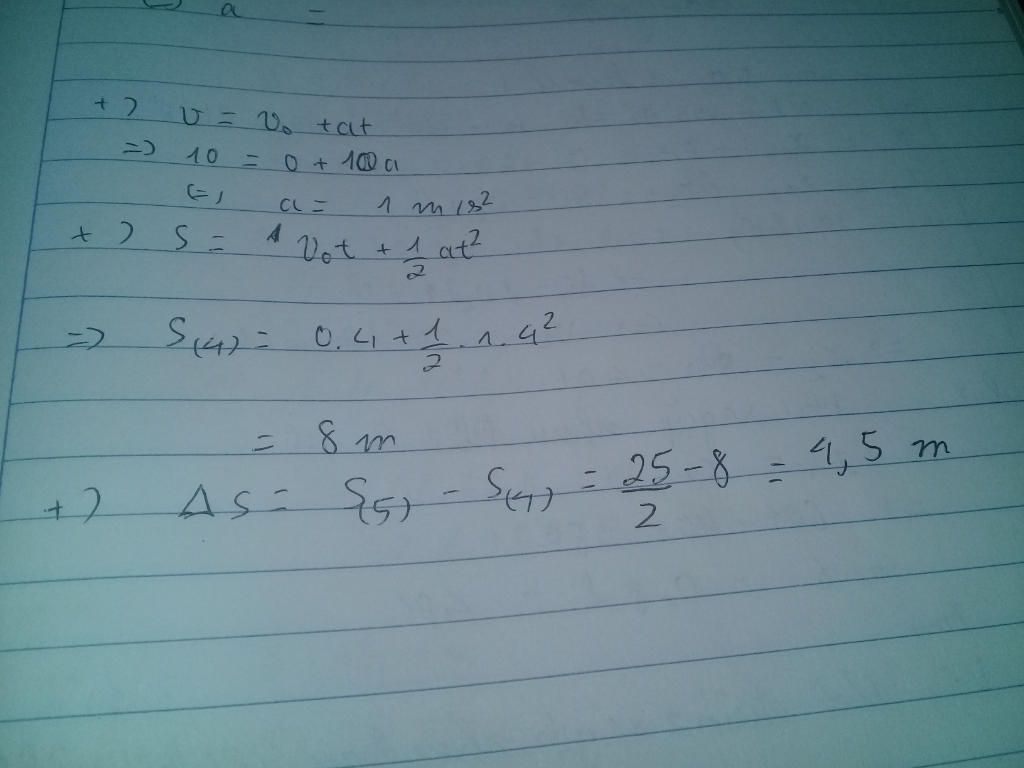 a =
+) v = v₀ + at
=> 10 = 0 + 10a
<=> a = 1 m/s²
+) S = v₀t + 1/2 at²
=> S(4) = 0.4 + 1/2 . 1 . 4²
= 8 m
+) ΔS = S(5) - S(4) = 25/2 - 8 = 4,5 m